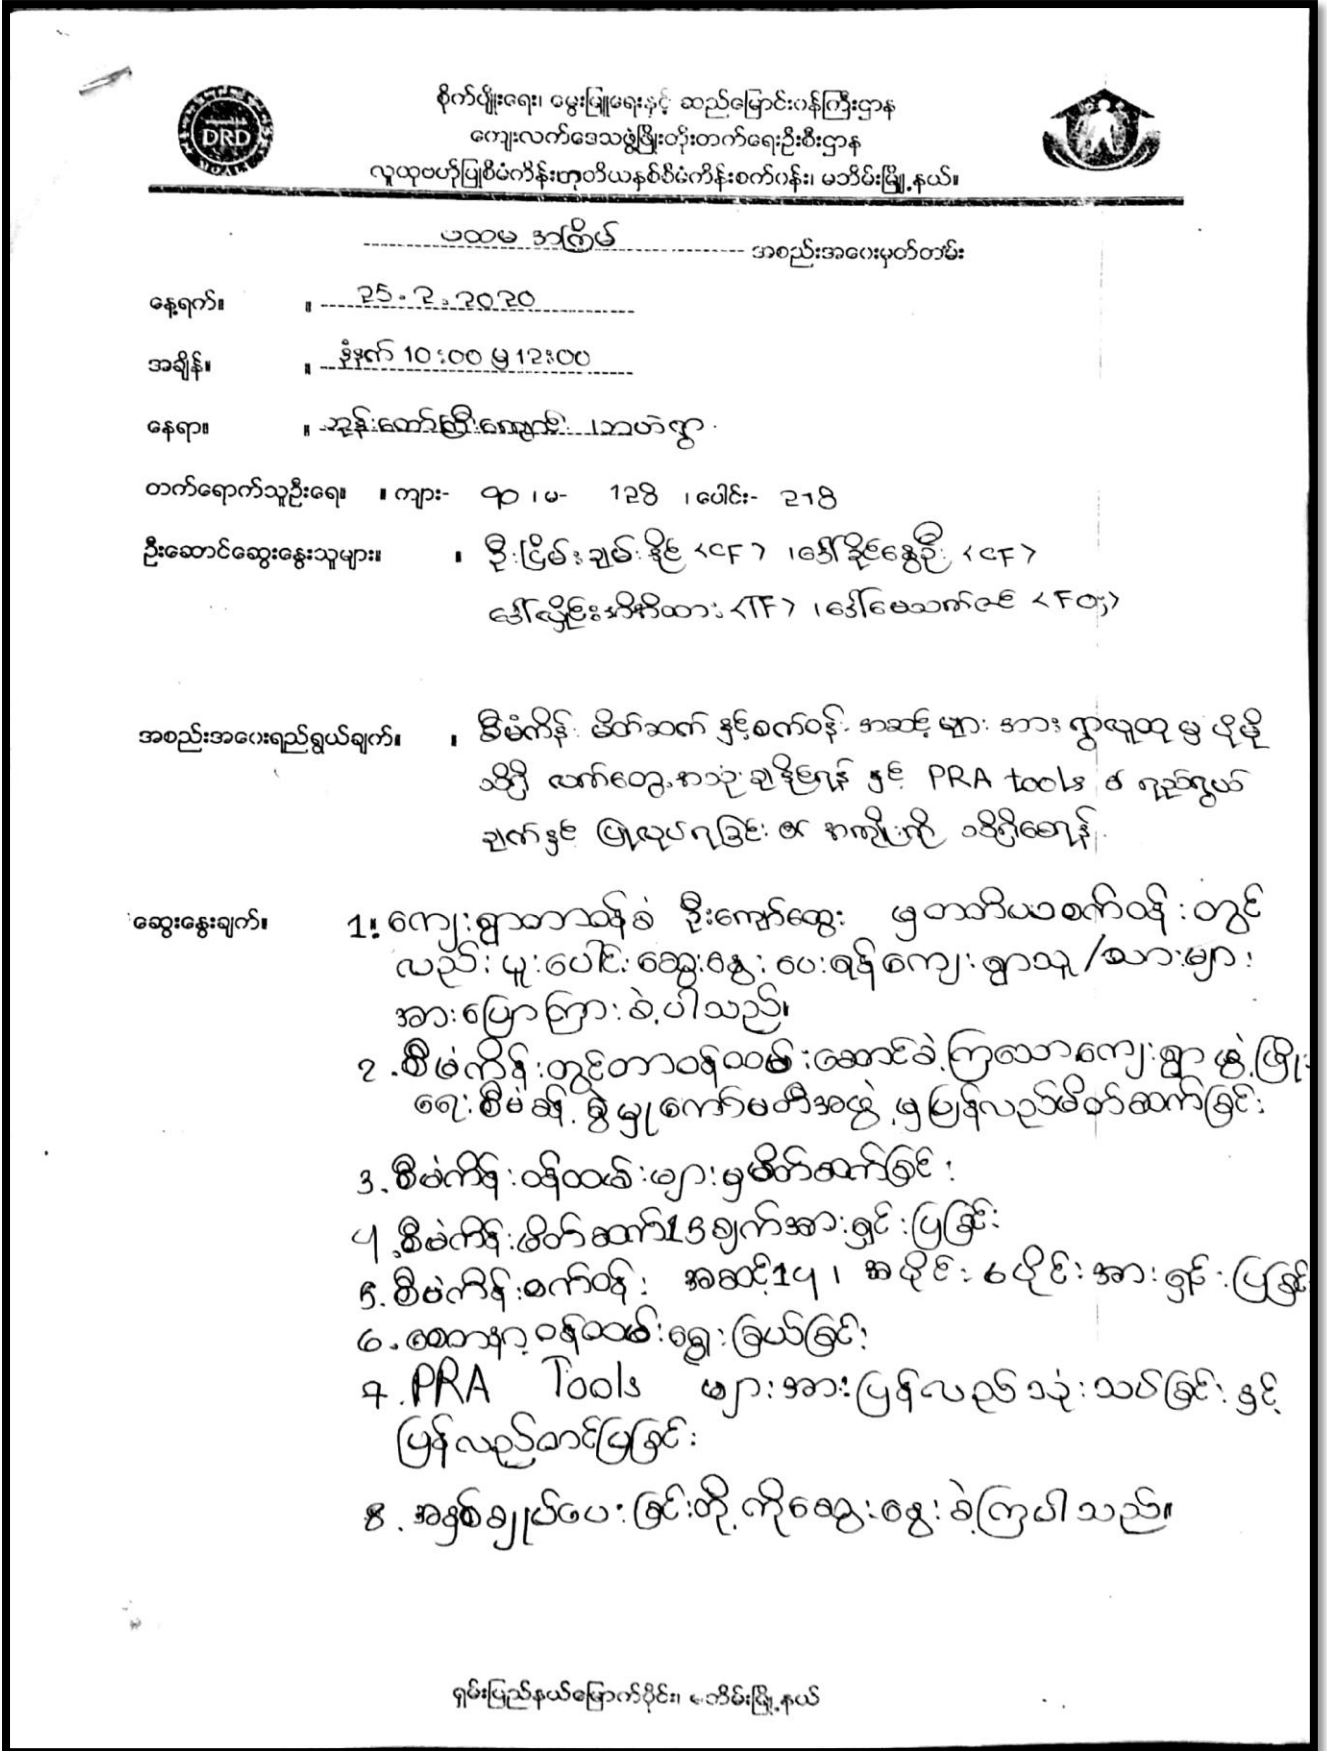 DRD
စိုက်ပျိုးရေး၊ မွေးမြူရေးနှင့် ဆည်မြောင်းဝန်ကြီးဌာန
ကျေးလက်ဒေသဖွံ့ဖြိုးတိုးတက်ရေးဦးစီးဌာန
လူထုဗဟိုပြုစီမံကိန်းတတိယနှစ်စီမံကိန်းစက်ဝန်း၊ မဘိမ်းမြို့နယ်။
ပထမ အကြိမ် အစည်းအဝေးမှတ်တမ်း
နေ့ရက်။ ။ 25.2.2020
အချိန်။ ။ နံနက် 10:00 မှ 12:00
နေရာ။ ။ ဘုန်းတော်ကြီးကျောင်း ၊ဘဟဲရွာ
တက်ရောက်သူဦးရေ။ ။ ကျား- ၅၀ ၊ မ- 128 ၊ ပေါင်း- 218
ဦးဆောင်ဆွေးနွေးသူများ။ ။ ဦးငြိမ်းချမ်းနိုင် <CF> ၊ဒေါ်ခိုင်နွေဦး <CF>
<TF> ၊ဒေါ်မေသက်ဇင်
အစည်းအဝေးရည်ရွယ်ချက်။ ။ စီမံကိန်း မိတ်ဆက် နှင့်စက်ဝန်း အဆင့်များ အား ရွာလူထု မှ ပိုမို
သိရှိ လက်တွေ့အသုံးချနိုင်ရန် နှင့် PRA tools ၏ ရည်ရွယ်
ချက်နှင့် ပြုလုပ်ရခြင်း ၏ အကျိုးကို သိရှိစေရန်
ဆွေးနွေးချက်။ 1။ ကျေးရွာတာဝန်ခံ ဦးကျော်ထွေး မှ တတိယစက်ဝန်းတွင်
လည်း ပူးပေါင်းဆွေးနွေးပေးရန်ကျေးရွာသူ/သားများ
အားပြောကြားခဲ့ပါသည်။
2.စီမံကိန်းတွင်တာဝန်ထမ်းဆောင်ခဲ့ကြသောကျေးရွာ ဖွံ့ဖြိုး
ရေးစီမံခန့်ခွဲမှုကော်မတီအဖွဲ့မှပြန်လည်မိတ်ဆက်ခြင်း
3.စီမံကိန်းဝန်ထမ်းများမှမိတ်ဆက်ခြင်း
4.စီမံကိန်းမိတ်ဆက်15ချက်အားရှင်းပြခြင်း
5.စီမံကိန်းစက်ဝန်း အဆင့်14၊ အပိုင်း 6ပိုင်းအားရှင်းပြခြင်း
6.စေတနာ့ဝန်ထမ်းရွေးခြယ်ခြင်း
7.PRA Tools များအားပြန်လည်သုံးသပ်ခြင်းနှင့်
ပြန်လည်တင်ပြခြင်း
8.အနှစ်ချုပ်ပေးခြင်းတို့ကိုဆွေးနွေးခဲ့ကြပါသည်။
ရှမ်းပြည်နယ်မြောက်ပိုင်း၊ မဘိမ်းမြို့နယ်